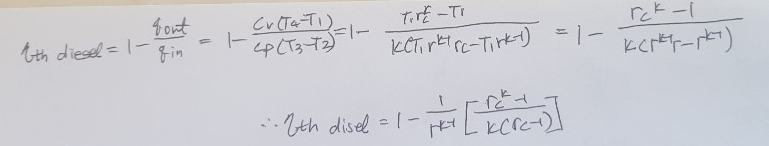 ηth diesel = 1 - qout/qin = 1 - Cv(T4-T1)/Cp(T3-T2) = 1 - (T1rc^k - T1)/(k(T1r^k-1rc - T1r^k-1)) = 1 - (rc^k - 1)/(k(r^k-1r - r^k-1))
∴ ηth disel = 1 - 1/r^k-1 [(rc^k - 1)/(k(rc-1))]